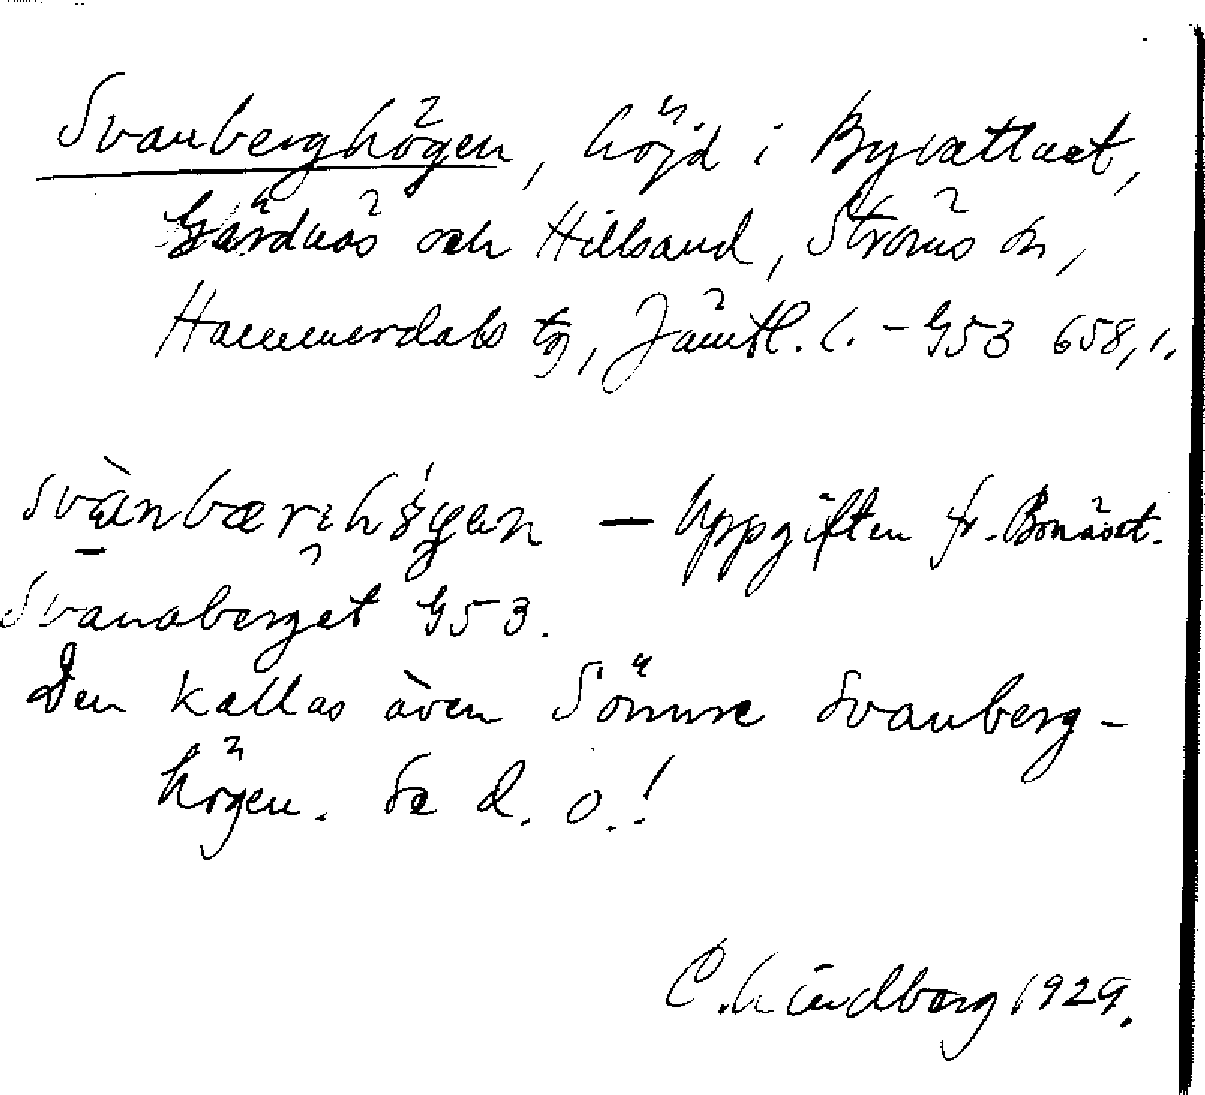 Svanberghögen, höjd i Byvattnet,
Gärdnäs och Hillsand, Ströms sn,
Hammerdals tg, Jämtl. l. – G53 658,1.
– Uppgiften fr. Bonäset.
Svanaberget G53.
Den kallas även Sömmre Svanberg-
högen. Se d. o.!
C. Lindberg 1929.